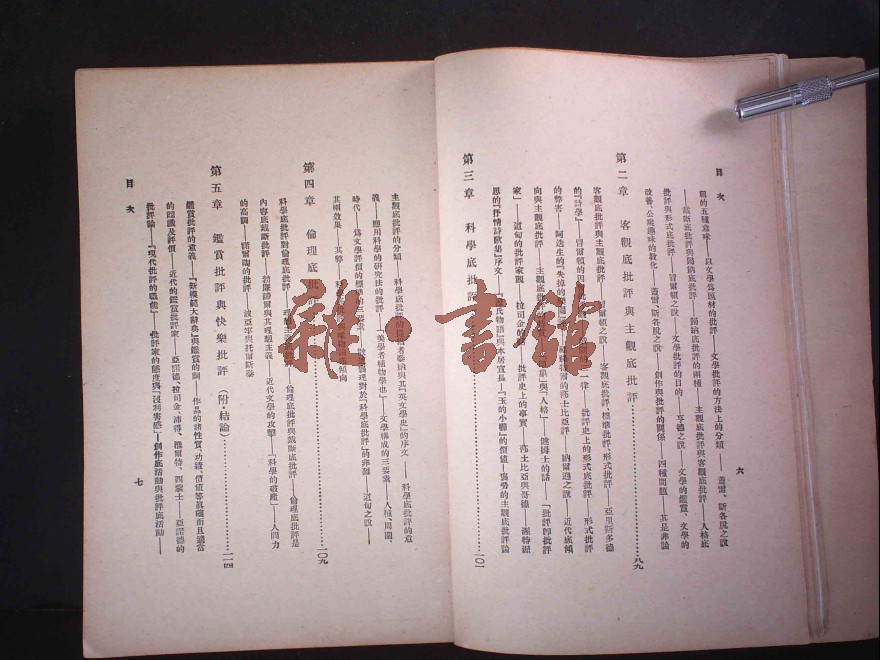 目次
類的五種意味——以文學爲底材的批評——文學批評的方法上的分類——蓋雷、斯各脫之說
——裁斷底批評與歸納底批評——歸納底批評的兩種——主觀底批評與客觀底批評——人格底
批評與形式底批評——冒爾頓之說——文學批評的目的——亨德之說——文學的鑑賞、文學的
改善、公衆趣味的教化——蓋雷、斯各脫之說——創作與批評的關係——四種問題——其是非論
第二章 客觀底批評與主觀底批評……八九
客觀底批評與主觀底批評——冒爾頓之說——客觀底批評、標準批評、形式批評——亞里斯多德
的『詩學』——冒爾頓的因——律——批評史上的形式底批評——形式批評
的弊害——阿迭生的『失掉的樂園』——莎士比亞評——納爾遜之說——近代底傾
向與主觀底批評——主觀底批評——集』與『人格』——的話——『批評卽批評
家』——道甸的批評家觀——拉司金的——批評史上的事實——莎士比亞與哥德——渥特涅
思的『抒情詩歌集』序文——氏物語』與本居宣長——『玉的小櫛』的價值——主觀底批評論
第三章 科學底批評……一〇一
六
主觀底批評的分類——科學底批評的——泰納與其『英文學史』的序文——科學底批評的意
義——應用科學的研究法的批評——美學者植物學也』——文學構成的三要素——人種、周圍、
時代——爲文學評價的標準的三要素——對於『科學底批評』的非難——道甸之說——
其兩效果——其弊——傾向
第四章 倫理底批評……一〇九
科學底批評對倫理底批評——理想主義——倫理底批評與裁斷底批評——倫理底批評是
內容底裁斷批評——勃廉諦爾與其理想主義——近代文學的攻擊——『科學的破產』——人間力
的高調——諾爾陶的批評——波亞寧與托爾斯泰
第五章 鑑賞批評與快樂批評（附・結論）……一一四
鑑賞批評的意義——『新模範大辭典』與鑑賞的詞——作品的諸性質、功績、價值等眞確而且適當
的認識及評價——近代的鑑賞批評家——亞諾德、拉司金、沛得、淮爾特、西蒙士——亞諾德的
批評論——『現代批評的職能』——批評家的態度與『沒利害感』——創作底活動與批評底活動——
目次
七
雜・書館